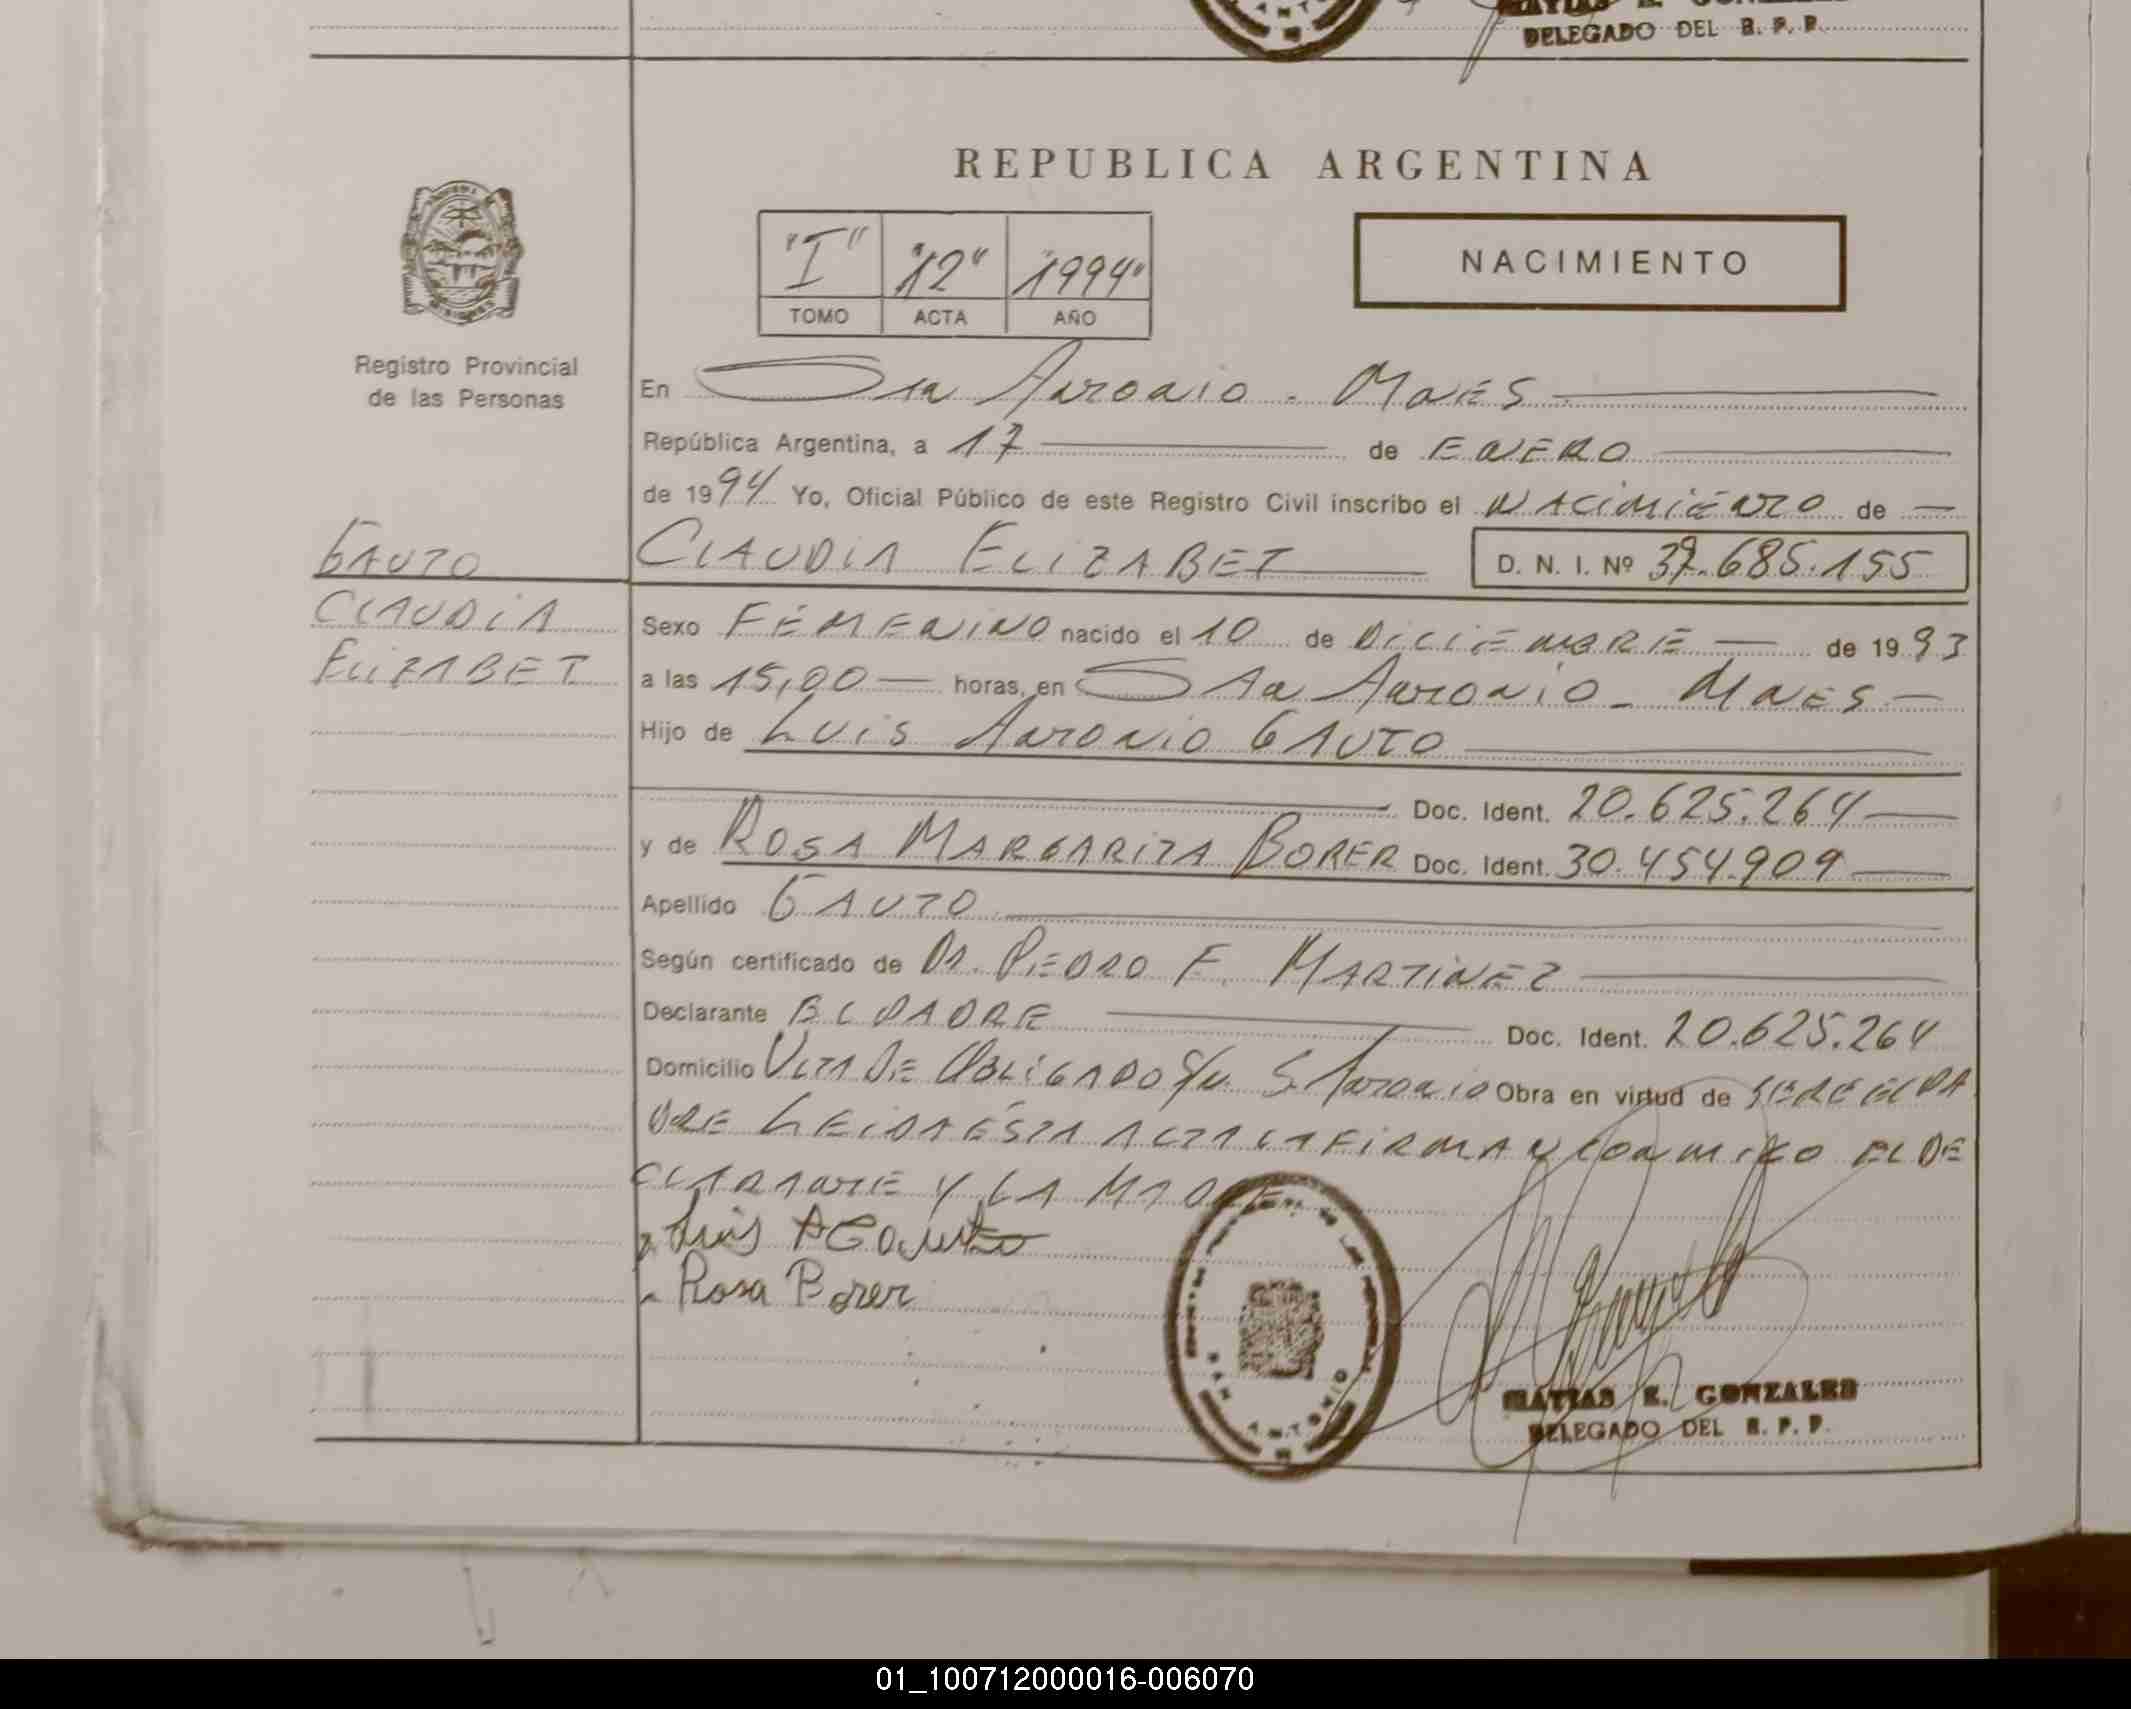 DELEGADO DEL R. P. P.
REPUBLICA ARGENTINA
"I" "12" "1994"
TOMO ACTA AÑO
NACIMIENTO
Registro Provincial
de las Personas
En San Antonio - Mnes
República Argentina, a 17 de ENERO
de 1994 Yo, Oficial Público de este Registro Civil inscribo el NACIMIENTO de
GAUTO
CLAUDIA
ELIZABET
CLAUDIA ELIZABET D. N. I. Nº 37.685.155
Sexo FEMENINO nacido el 10 de DICIEMBRE de 1993
a las 15,00 horas, en San Antonio - Mnes
Hijo de LUIS ANTONIO GAUTO
Doc. Ident. 20.625.264
y de ROSA MARGARITA BORER Doc. Ident. 30.454.909
Apellido GAUTO
Según certificado de DR. PEDRO F. MARTINEZ
Declarante EL PADRE Doc. Ident. 20.625.264
Domicilio VLTA DE OBLIGADO S/N S. Antonio Obra en virtud de SER EL PA
DRE LEIDA ÉSTA ACTA LA FIRMAN CONMIGO EL DE
CLARANTE Y LA MADRE
Luis A Gauto
Rosa Borer
SAN ANTONIO
MATIAS E. GONZALES
DELEGADO DEL R. P. P.
01_100712000016-006070